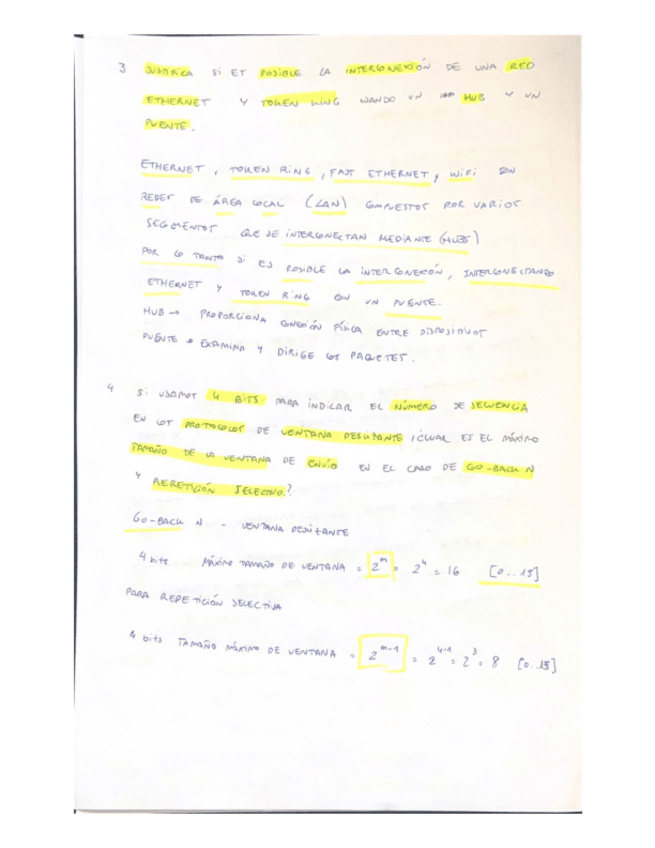 3 JUSTIFICA SI ES POSIBLE LA INTERCONEXIÓN DE UNA RED
ETHERNET Y TOKEN RING USANDO UN HUB Y UN
PUENTE.
ETHERNET, TOKEN RING, FAST ETHERNET, WIFI SON
REDES DE ÁREA LOCAL (LAN) COMPUESTOS POR VARIOS
SEGMENTOS QUE SE INTERCONECTAN MEDIANTE (HUBS)
POR LO TANTO SI ES POSIBLE LA INTERCONEXIÓN, INTERCONECTANDO
ETHERNET Y TOKEN RING CON UN PUENTE.
HUB → PROPORCIONA CONEXIÓN FÍSICA ENTRE DISPOSITIVOS
PUENTE → EXAMINA Y DIRIGE LOS PAQUETES.
4 SI USAMOS 4 BITS PARA INDICAR EL NÚMERO DE SECUENCIA
EN LOS PROTOCOLOS DE VENTANA DESLIZANTE ¿CUAL ES EL MÁXIMO
TAMAÑO DE LA VENTANA DE ENVÍO EN EL CASO DE GO-BACK N
Y REPETICIÓN SELECTIVO?
GO-BACK N - VENTANA DESLIZANTE
4 bits MÁXIMO TAMAÑO DE VENTANA = 2^m = 2^4 = 16 [0..15]
PARA REPETICIÓN SELECTIVA
4 bits TAMAÑO MÁXIMO DE VENTANA = 2^m-1 = 2^4-1 = 2^3 = 8 [0..15]